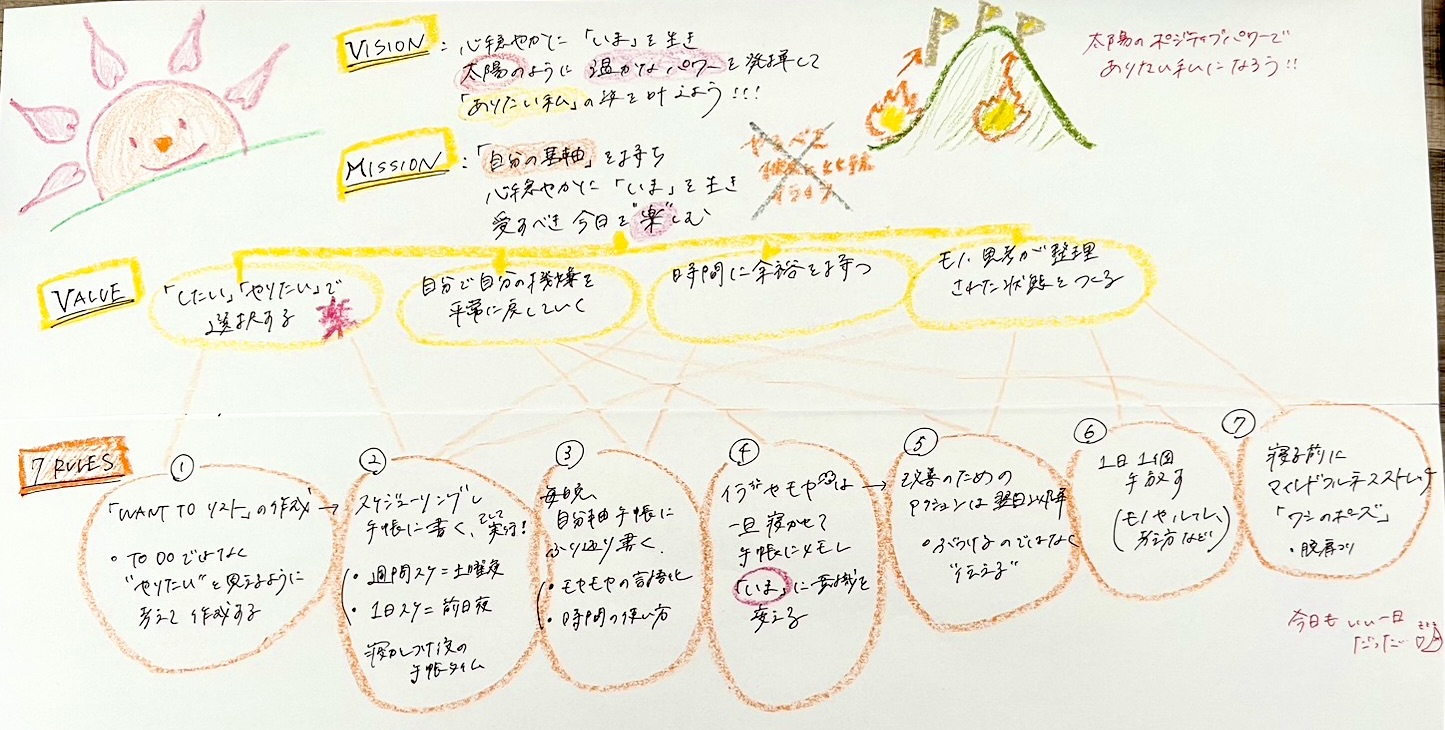 VISION : 心穏やかに「いま」を生き
太陽のように 温かなパワーを発揮して
「ありたい私」の姿を叶えよう!!!
太陽のポジティブパワーで
ありたい私になろう!!
MISSION : 「自分の基軸」を持ち
心穏やかに「いま」を生き
愛すべき今日を"楽"しむ
やるべき
イライラ
VALUE
「したい」「やりたい」で
選択する
楽
自分で自分の機嫌を
平常に戻していく
時間に余裕を持つ
モノ、思考が整理
された状態をつくる
7 RULES
①
「WANT TO リスト」の作成
• TO DO ではなく
"やりたい"と思えるように
考えて作成する
→ ②
スケジューリングし
手帳に書く、そして実行!
• 週間スケ=土曜夜
• 1日スケ=前日夜
寝かしつけ後の
手帳タイム
③
毎晩、
自分軸手帳に
ふり返り書く、
• モヤモヤの言語化
• 時間の使い方
④
イライラやモヤモヤは
一旦寝かせて
手帳にメモし
「いま」に意識を
変える
→ ⑤
改善のための
アクションは翌日以降
• ぶつけるのではなく
"伝える"
⑥
1日1個
手放す
(モノやルール、
考え方など)
⑦
寝る前に
マインドフルネスストレッチ
「ワシのポーズ」
• 脱肩コリ
今日もいい一日
だった